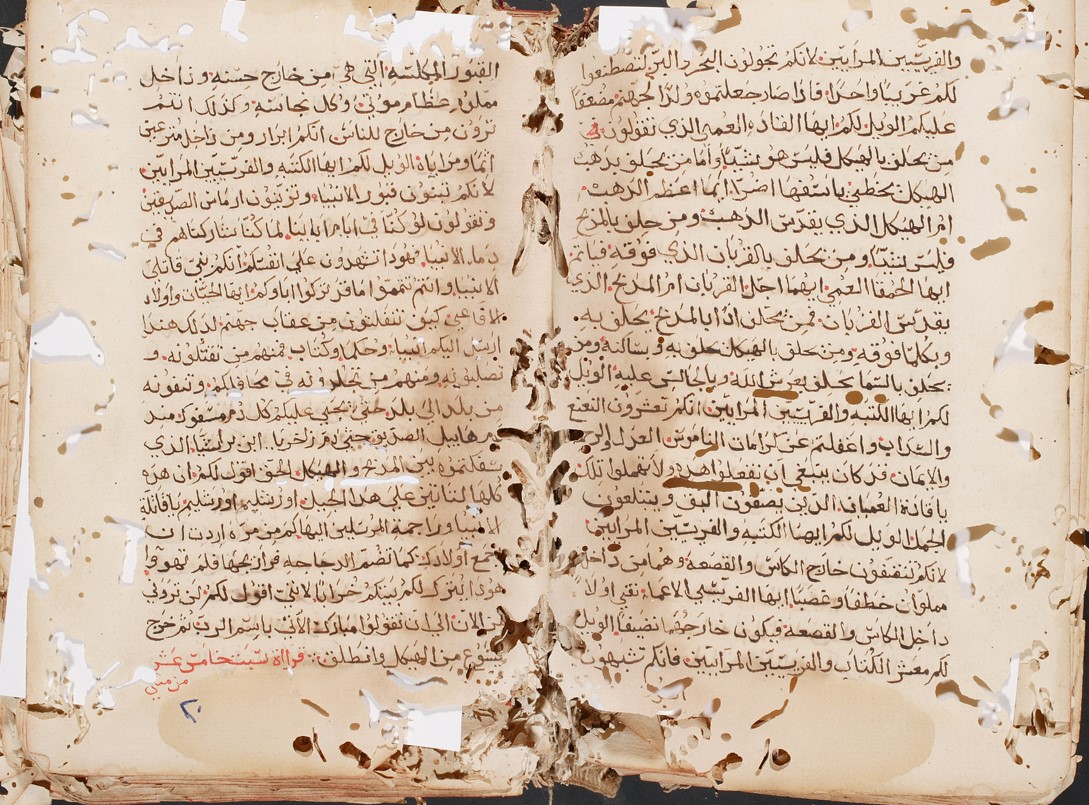 والفريسيين المرايين لانكم تجولون البحر والبر لتصطنعوا
لكم غريبا واحدا فاذا صار جعلتموه ولدا لجهنم مضعفا
عليكم الويل لكم ايها القاده العمي الذي تقولون
من يحلف بالهيكل فليس هو بشيا واما من يحلف بدهب
الهيكل يخطي
ام الهيكل الذي يقدس الدهب ومن حلف بالمدبح
فليس بشيا ومن يحلف بالقربان الذي فوقه
ايها الحمقا العمي ايهما اجل القربان ام المدبح الذي
يقدس القربان فمن يحلف اذا بالمدبح يحلف به
وبكلما فوقه ومن حلف بالهيكل حلف به وبساكنه ومن
يحلف بالسما يحلف بعرش الله وبالجالس عليه الويل
لكم ايها الكتبه والفريسيين المرايين انكم تعشرون النعنع
والسداب واغفلتم عن كرامات الناموس العدل
والايمان قد كان ينبغي ان تفعلوا هده ولا تهملوا تلك
يا قادة العميان الدين يصفون البق و يبتلعون
الجمل الويل لكم ايها الكتبه والفريسيين المرايين
لانكم تنقفون خارج الكاس والقصعه وهما من داخل
مملوان خطفا وغصبا ايها الفريسي الاعما نقي اولا
داخل الكاس والقصعه فيكون خارجهما نضيفا الويل
لكم معشر الكتاب والفريسيين المرايين فانكم تشبهون
القبور المكلسه التي هي من خارج حسنه و داخل
مملوه عظام موتى وكل نجاسه وكذلك انتم
ترون من خارج للناس انكم ابرار ومن داخل
اتما ومراياه الويل لكم ايها الكتبه والفريسيين المرايين
لانكم تبنون قبور الانبيا وتزينون ارماس الصديقين
وتقولون لو كنا في ايام اباينا لما كنا نشاركهم في
دما الانبيا تشهدون على انفسكم انكم بني قاتلي
الانبيا وانتم تتممون اباوكم ايها الحيات واولاد
الافاعي كيف تنفلتون من عقاب جهنم لدلك هندا
ارسل اليكم انبيا وحكما وكتاب فمنهم من تقتلونه و
تصلبونه ومنهم من تجلدونه في محافلكم وتنفونه
من بلد الى بلد حتى يحيى عليكم كل دم مسفوك مند
دم هابيل الصديق حتى دم زخريا ابن براشيا الدي
قتلتموه بين المدبح و الهيكل الحق اقول لكم ان هده
كلها لتاتين على هدا الجيل اورشليم اورشليم يا قاتلة
الانبيا وراجمة المرسلين اليها كم من مره اردت ان
اجمع اولادك كما تضم الدجاجه فراريجها فلم تهووا
هودا يترك لكم بيتكم خرابا لانني اقول لكم لن تروني
من الان الى ان تقولوا مبارك الاتي باسم الرب تم خرج
يسوع من الهيكل وانطلق قراة سبت خامس عشر
من متي
٢٠